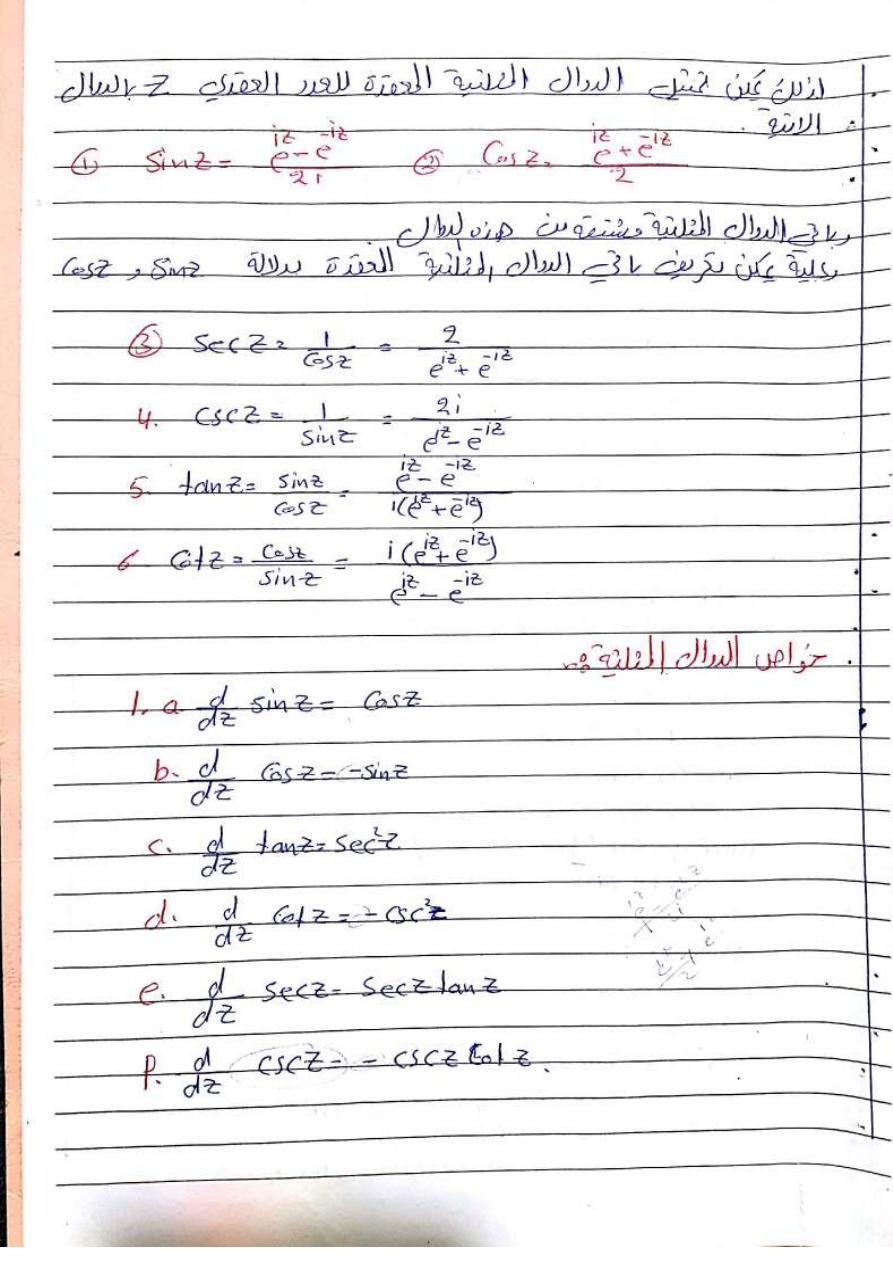 لذلك يمكن تمثيل الدوال المثلثية المعقدة للعدد العقدي Z بالدوال
الاتية.
① Sin z = (e^{iz} - e^{-iz}) / 2i ② Cos z = (e^{iz} + e^{-iz}) / 2
وباقي الدوال المثلثية مشتقة من هذه الدوال
وعلية يمكن تعريف باقي الدوال المثلثية العقدة بدلالة Sinz و Cosz
③ Sec z = 1 / Cos z = 2 / (e^{iz} + e^{-iz})
4. csc z = 1 / Sin z = 2i / (e^{iz} - e^{-iz})
5. tan z = Sin z / Cos z = (e^{iz} - e^{-iz}) / i(e^{iz} + e^{-iz})
6 Cot z = Cos z / Sin z = i(e^{iz} + e^{-iz}) / (e^{iz} - e^{-iz})
خواص الدوال المثلثية:-
1. a d/dz sin z = Cos z
b. d/dz Cos z = -sin z
c. d/dz tan z = Sec²z
d. d/dz Cot z = -csc²z
e. d/dz Sec z = Sec z tan z
f. d/dz csc z = -csc z Cot z.